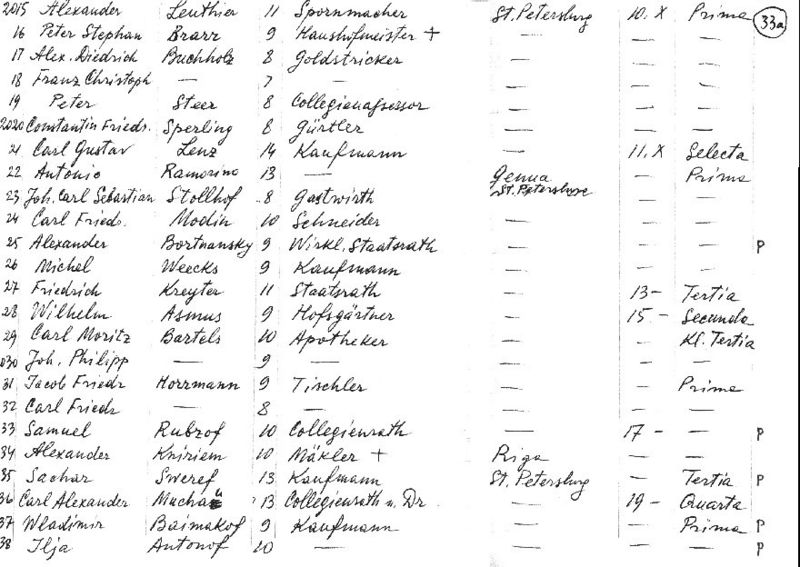 2015 Alexander Leuthier 11 Spornmacher St. Petersburg 10. X Prima 33a
16 Peter Stephan Brarr 9 Haushofmeister + — — —
17 Alex. Diedrich Buchholz 8 Goldstricker — — —
18 Franz Christoph — 7 — — — —
19 Peter Steer 8 Collegienassessor — — —
2020 Constantin Friedr. Sperling 8 Gürtler — — —
21 Carl Gustav Lenz 14 Kaufmann — 11. X Selecta
22 Antonio Ramorino 13 — Genua — Prima
23 Joh. Carl Sebastian Stollhof 8 Gastwirth St. Petersburg — —
24 Carl Friedr. Modin 10 Schneider — — —
25 Alexander Bortnansky 9 Wirkl. Staatsrath — — — P
26 Michel Weecks 9 Kaufmann — — —
27 Friedrich Kreyter 11 Staatsrath — 13 — Tertia
28 Wilhelm Asmus 9 Hofsgärtner — 15 — Secunda
29 Carl Moritz Bartels 10 Apotheker — — Kl. Tertia
030 Joh. Philipp — 9 — — — —
31 Jacob Friedr Horrmann 9 Tischler — — Prima
32 Carl Friedr — 8 — — — —
33 Samuel Rubzof 10 Collegienrath — 17 — — P
34 Alexander Kniriem 10 Mäkler + Riga — —
35 Sachar Sweref 13 Kaufmann St. Petersburg — Tertia P
36 Carl Alexander 13 Collegienrath u. Dr — 19 — Quarta
37 Wladimir Baimakof 9 Kaufmann — Prima P
38 Ilja Antonof 10 — — — — P